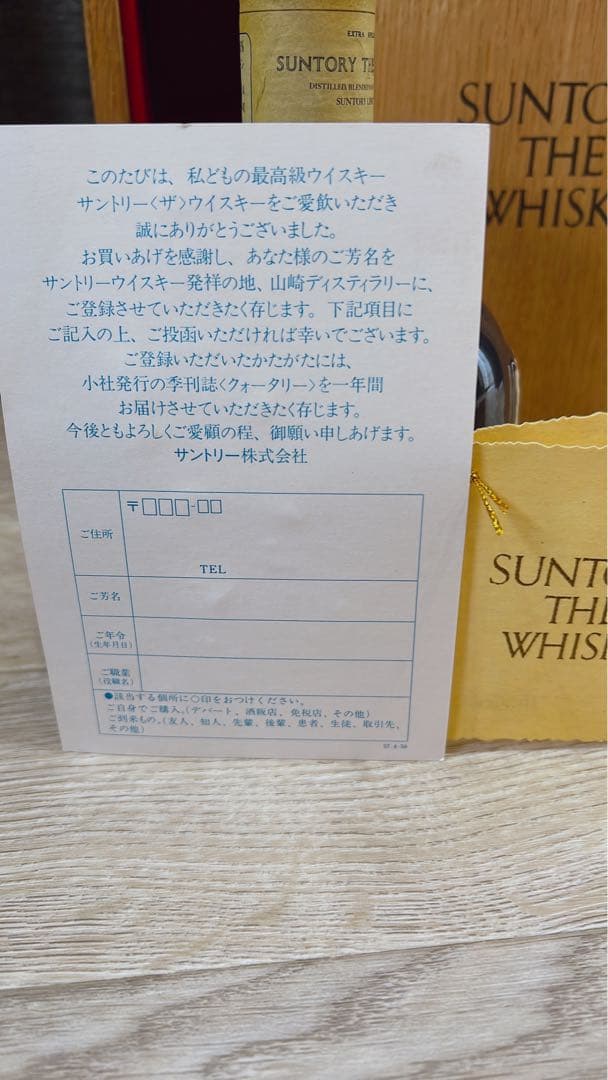 EXTRA
SUNTORY TH
DISTILLED, BLENDED
SUNTORY
SUNTO
THE
WHISK
このたびは、私どもの最高級ウイスキー
サントリー〈ザ〉ウイスキーをご愛飲いただき
誠にありがとうございました。
お買いあげを感謝し、あなた様のご芳名を
サントリーウイスキー発祥の地、山崎ディスティラリーに、
ご登録させていただきたく存じます。下記項目に
ご記入の上、ご投函いただければ幸いでございます。
ご登録いただいたかたがたには、
小社発行の季刊誌〈クォータリー〉を一年間
お届けさせていただきたく存じます。
今後ともよろしくご愛顧の程、御願い申しあげます。
サントリー株式会社
ご住所
〒□□□-□□
TEL
ご芳名
ご年令
(生年月日)
ご職業
(役職名)
●該当する個所に○印をおつけください。
ご自身でご購入。(デパート、酒販店、免税店、その他)
ご到来もの。(友人、知人、先輩、後輩、患者、生徒、取引先、
その他)
SUNTO
THE
WHIS